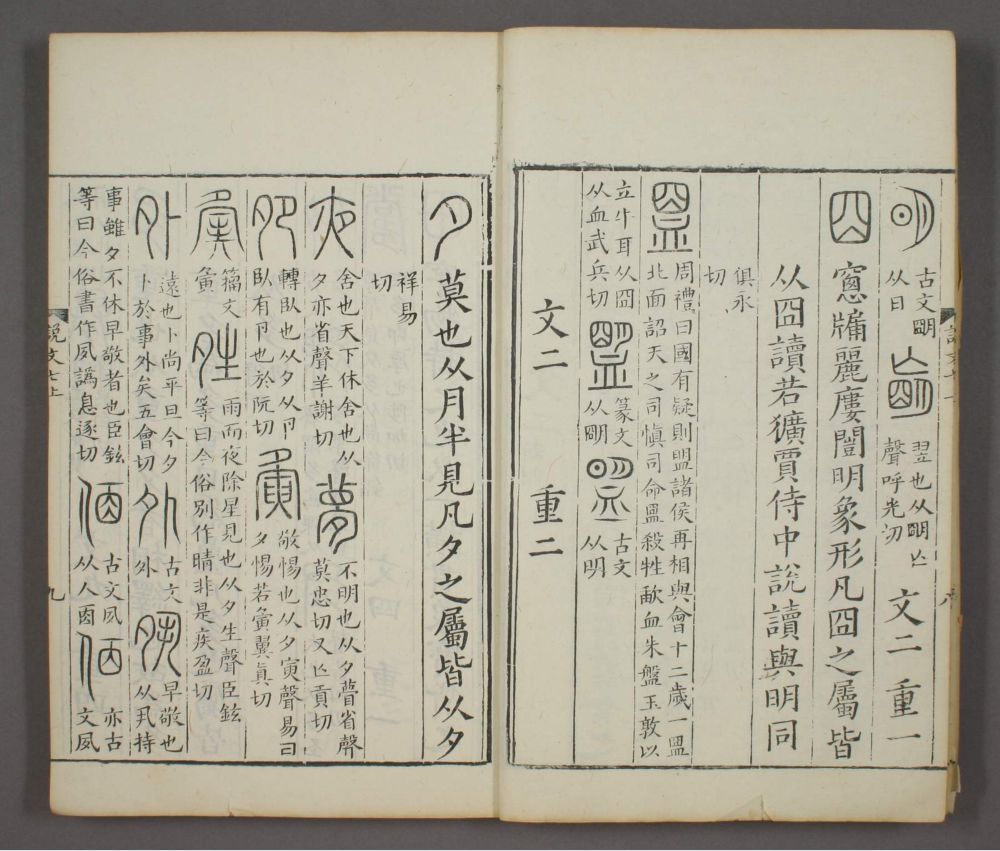 明 古文朙从日 朚 翌也从朙亡聲呼光切 文二 重一
囧 窻牖麗廔闓明象形凡囧之屬皆
从囧讀若獷賈侍中說讀與明同
俱永切
𥁰 周禮曰國有疑則盟諸侯再相與會十二歲一𥁰北面詔天之司慎司命𥁰殺牲歃血朱盤玉敦以
立牛耳从囧从血武兵切 𥂗 篆文从朙 盟 古文从明
文二 重二
説文七上
八
夕 莫也从月半見凡夕之屬皆从夕
祥易切
夜 舍也天下休舍也从夕亦省聲羊謝切 夢 不明也从夕瞢省聲莫忠切又亡貢切
夗 轉臥也从夕从卪臥有卪也於阮切 夤 敬惕也从夕寅聲易曰夕惕若夤翼真切
𡖍 籒文夤 夝 雨而夜除星見也从夕生聲臣鉉等曰今俗別作晴非是疾盈切
外 遠也卜尚平旦今夕卜於事外矣五會切 𡖄 古文外 𡖊 早敬也从丮持
事雖夕不休早敬者也臣鉉等曰今俗書作夙譌息逐切 㑉 古文夙从人㐁 𠈇 亦古文夙
説文七上
九